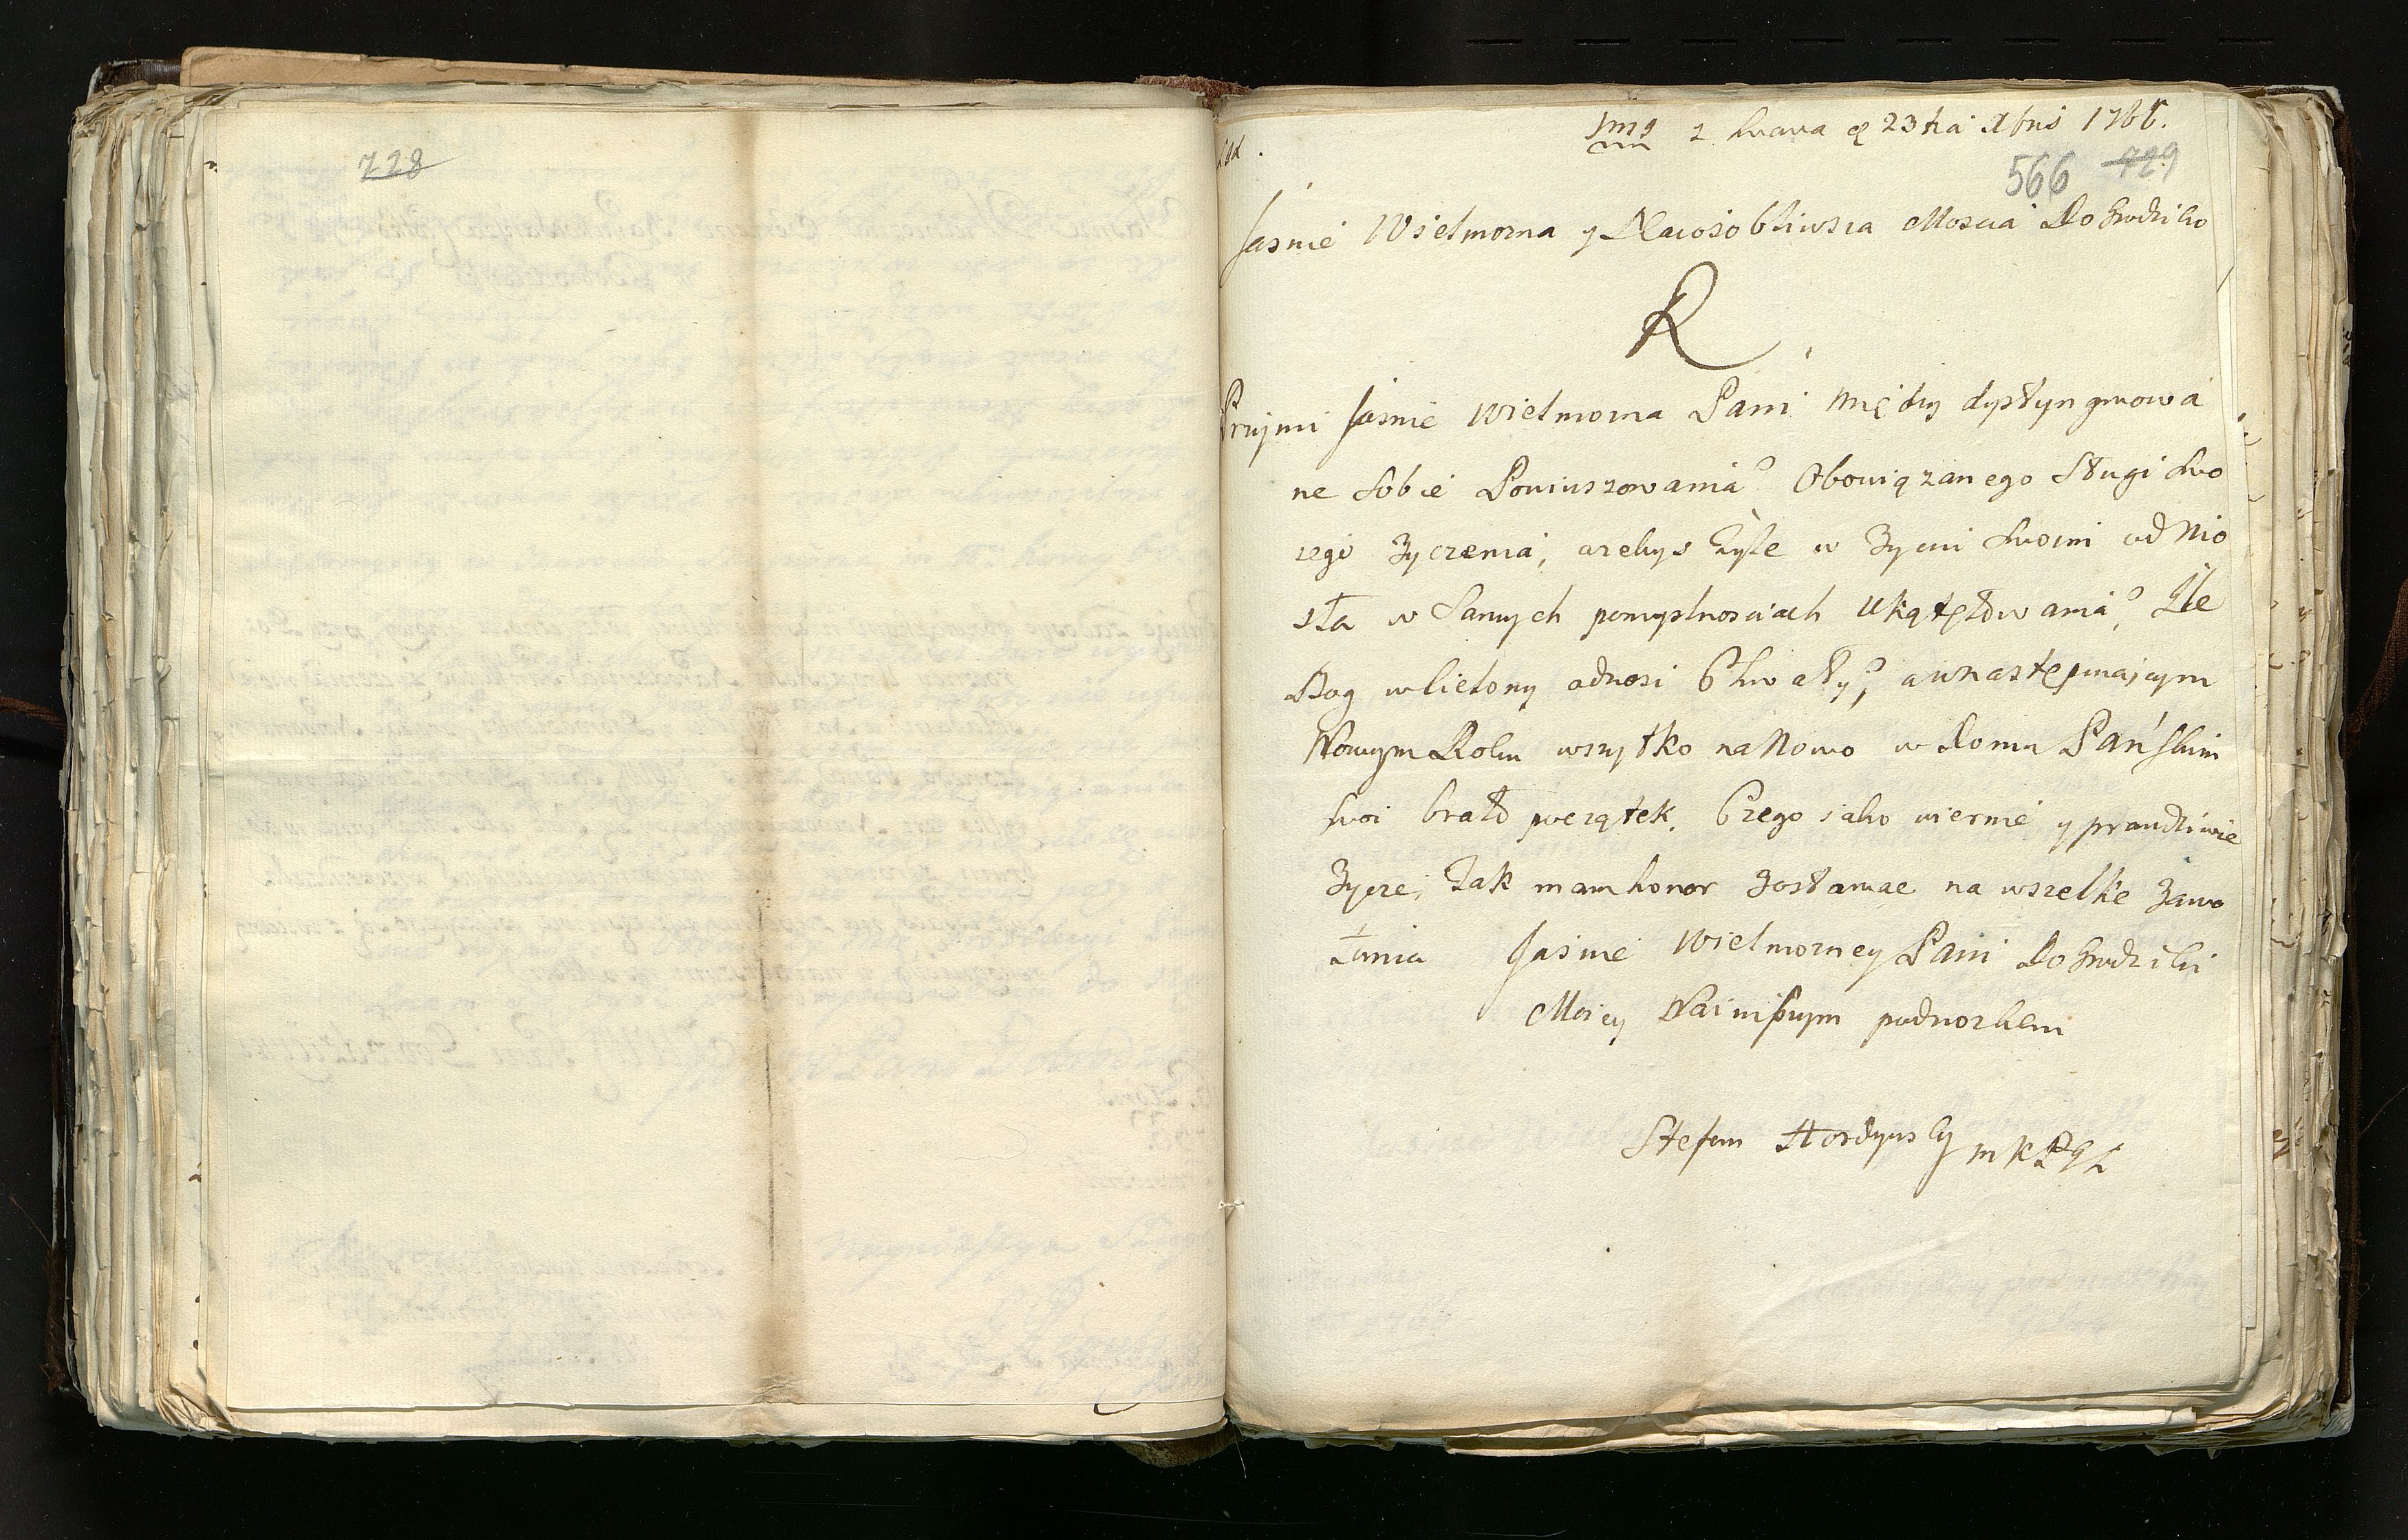 728
z Lwowa 23tia Xbris 1766.
566 729
Jasnie Wielmozna y Naiosobliwsza Moscia Dobrodziko
R
Przyimi Jasnie Wielmozna Pani między dystyngwowa
ne Sobie Powinszowania Obowiązanego Sługi Swo
iego Zyczenia, azebys Tyle w Zyciu Swoim odnio
sła w Samych pomyslnosciach Ukątętowania, Ile
Bog wcielony odnosi Chwały, a wnastępuiącym
Nowym Roku wszytko na Nowo w Domu Pańskim
swoi brało początek. Czego iako wiernie y prawdziwie
Zycze, Tak mam honor zostawac na wszelkie Zawo
łania Jasnie Wielmozney Pani Dobrodziki
Moiey Nainiszym podnozkem
Stefan Hordynsky